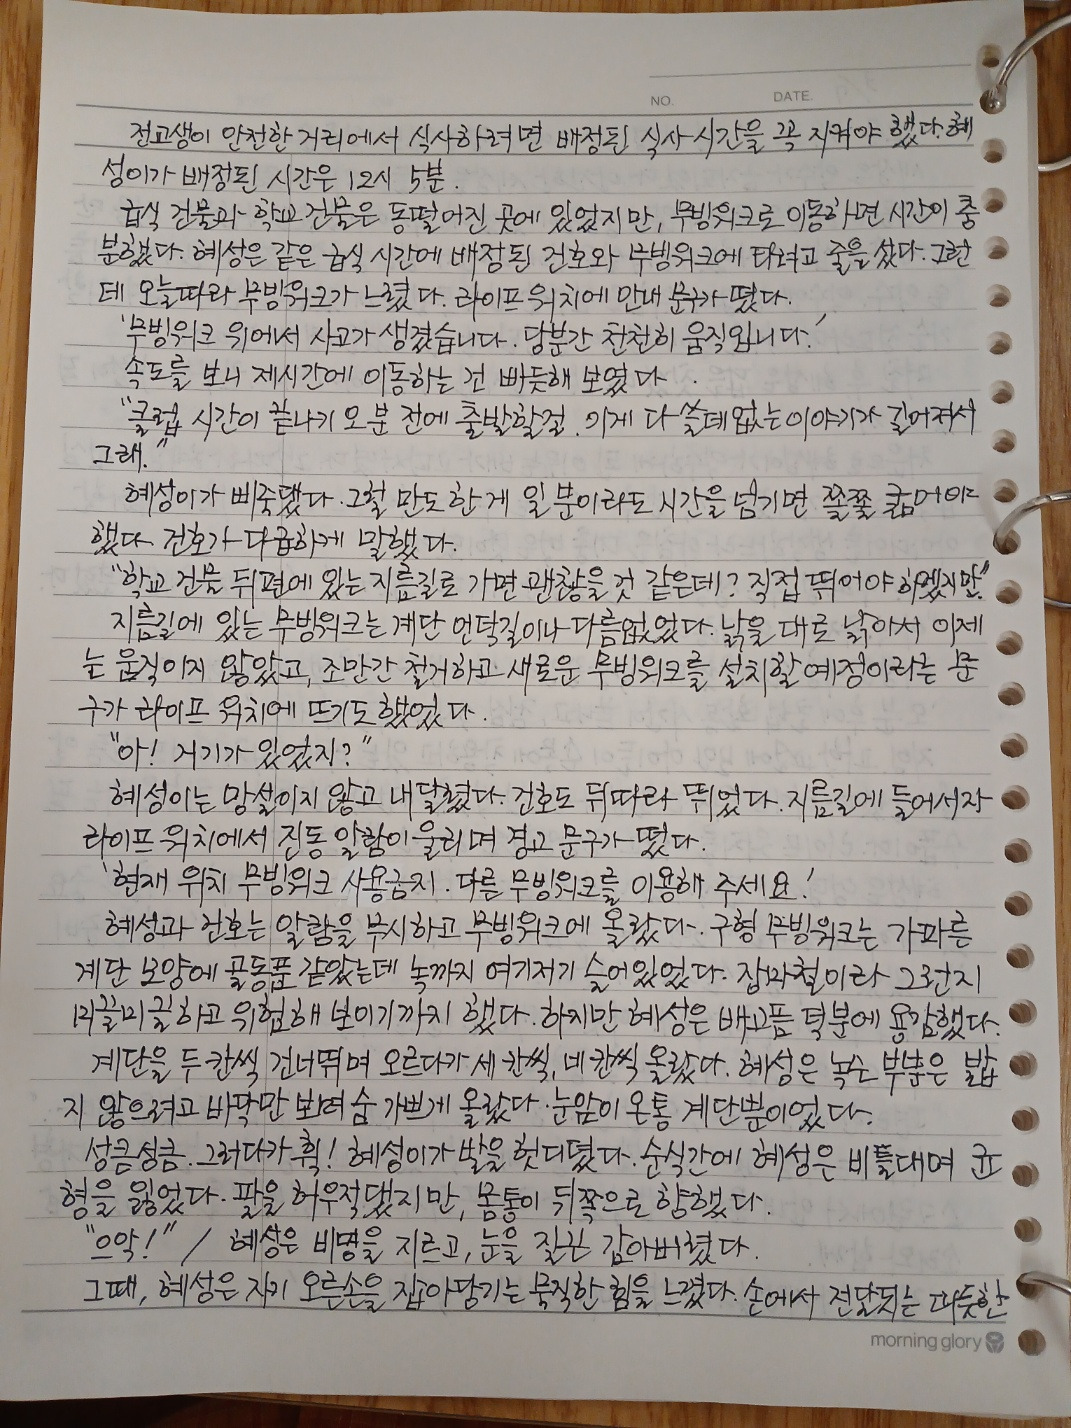 NO. DATE.
전교생이 안전한 거리에서 식사하려면 배정된 식사 시간을 꼭 지켜야 했다. 혜
성이가 배정된 시간은 12시 5분.
급식 건물과 학교 건물은 동떨어진 곳에 있었지만, 무빙워크로 이동하면 시간이 충
분했다. 혜성은 같은 급식 시간에 배정된 건호와 무빙워크에 타려고 줄을 섰다. 그런
데 오늘따라 무빙워크가 느렸다. 라이프 워치에 안내 문구가 떴다.
'무빙워크 위에서 사고가 생겼습니다. 당분간 천천히 움직입니다.'
속도를 보니 제시간에 이동하는 건 빠듯해 보였다.
"클럽 시간이 끝나기 오 분 전에 출발할걸. 이게 다 쓸데없는 이야기가 길어져서
그래."
혜성이가 삐죽댔다. 그럴 만도 한 게 일 분이라도 시간을 넘기면 쫄쫄 굶어야
했다. 건호가 다급하게 말했다.
"학교 건물 뒤편에 있는 지름길로 가면 괜찮을 것 같은데? 직접 뛰어야 하겠지만."
지름길에 있는 무빙워크는 계단 언덕길이나 다름없었다. 낡을 대로 낡아서 이제
는 움직이지 않았고, 조만간 철거하고 새로운 무빙워크를 설치할 예정이라는 문
구가 라이프 워치에 뜨기도 했었다.
"아! 거기가 있었지?"
혜성이는 망설이지 않고 내달렸다. 건호도 뒤따라 뛰었다. 지름길에 들어서자
라이프 워치에서 진동 알람이 울리며 경고 문구가 떴다.
'현재 위치 무빙워크 사용금지. 다른 무빙워크를 이용해 주세요.'
혜성과 건호는 알람을 무시하고 무빙워크에 올랐다. 구형 무빙워크는 가파른
계단 모양에 골동품 같았는데 녹까지 여기저기 슬어있었다. 잡과철이라 그런지
미끌미끌하고 위험해 보이기까지 했다. 하지만 혜성은 배고픔 덕분에 용감했다.
계단을 두 칸씩 건너뛰며 오르다가 세 칸씩, 네 칸씩 올랐다. 혜성은 녹슨 부분은 밟
지 않으려고 바닥만 보며 숨 가쁘게 올랐다. 눈앞이 온통 계단뿐이었다.
성큼성큼. 그러다가 휙! 혜성이가 발을 헛디뎠다. 순식간에 혜성은 비틀대며 균
형을 잃었다. 팔을 허우적댔지만, 몸통이 뒤쪽으로 향했다.
"으악!" / 혜성은 비명을 지르고, 눈을 질끈 감아버렸다.
그때, 혜성은 자기 오른손을 잡아당기는 묵직한 힘을 느꼈다. 손에서 전달되는 따듯한
morning glory